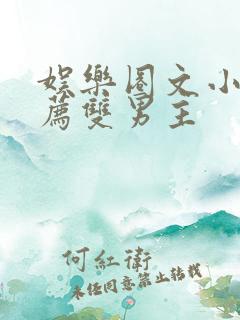 娛樂圈文小
薦雙男主
何紅衛
未经同意禁止转载